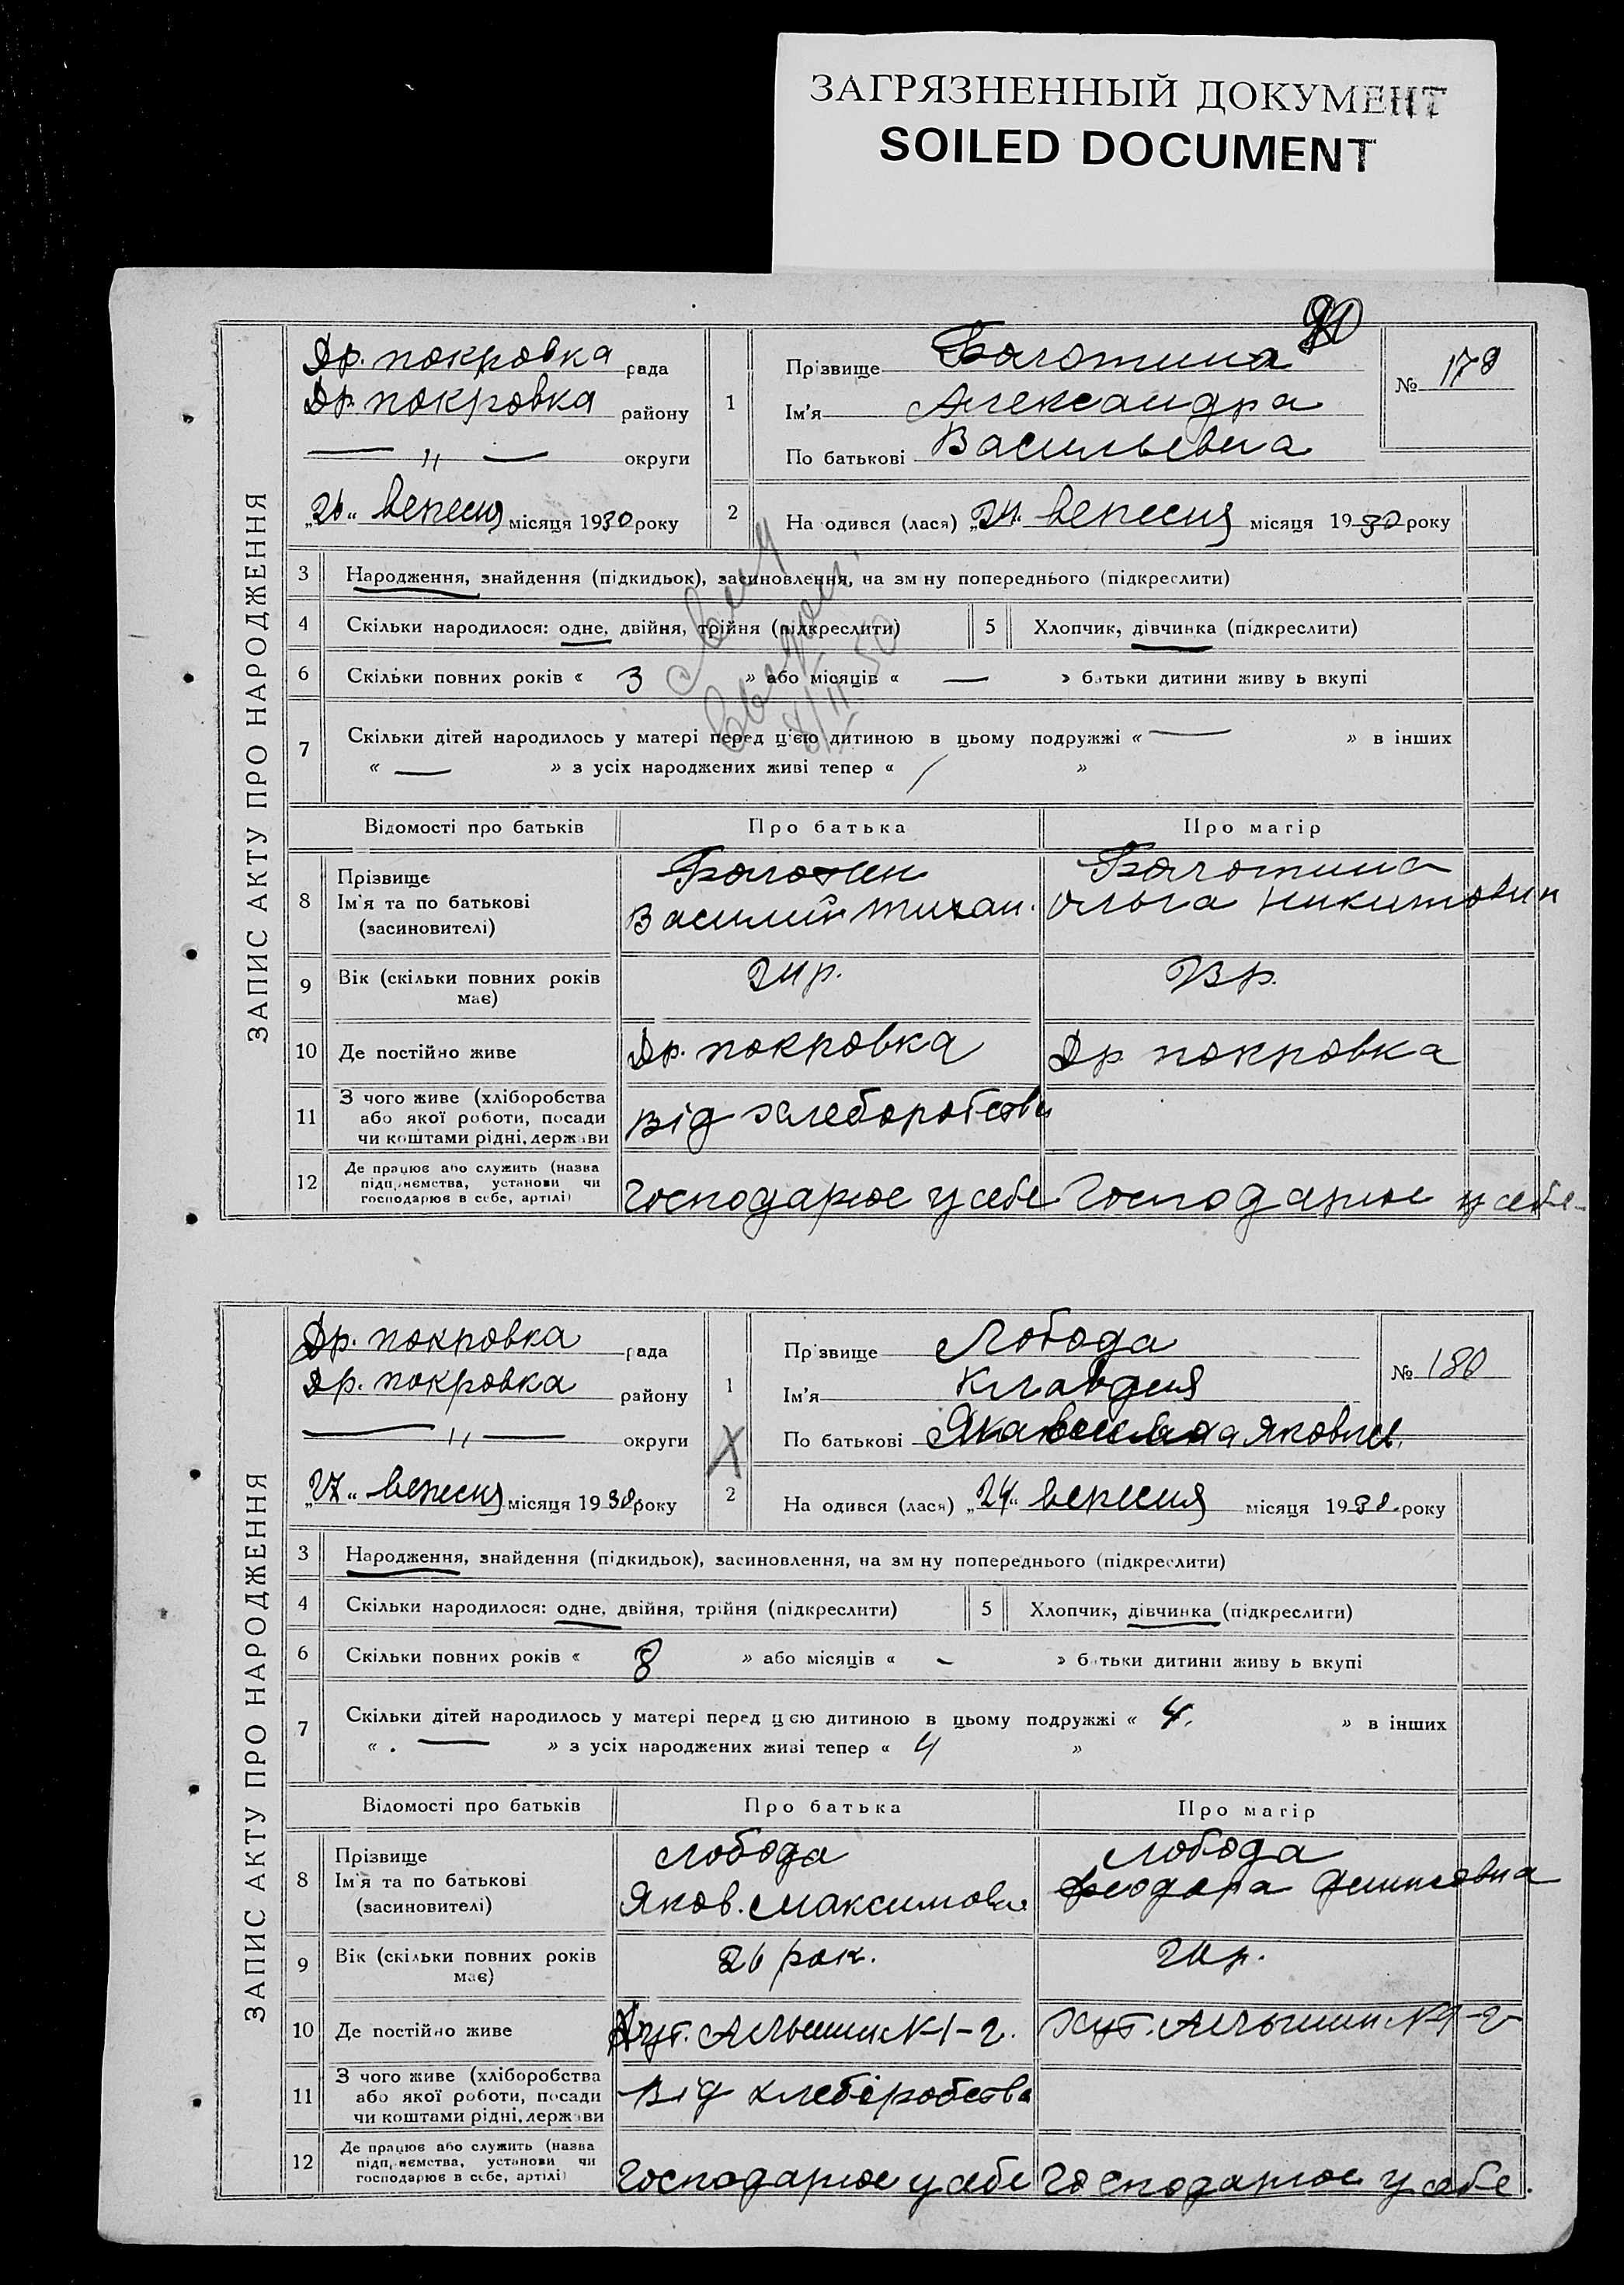 ЗАГРЯЗНЕННЫЙ ДОКУМЕНТ
SOILED DOCUMENT
90
ЗАПИС АКТУ ПРО НАРОДЖЕННЯ
Др. покровка рада
Др. покровка району
— " — округи
„26“ вересня місяця 1930 року
1
Прізвище Болотина
Ім'я Александра
По батькові Васильевна
№ 179
2 На одився (лася) „24“ вересня місяця 1930 року
3 Народження, знайдення (підкидьок), засиновлення, на зм ну попереднього (підкреслити)
4 Скільки народилося: одне, двійня, трійня (підкреслити) 5 Хлопчик, дівчинка (підкреслити)
6 Скільки повних років « 3 » або місяців « — » батьки дитини живу ь вкупі
7 Скільки дітей народилось у матері перед цією дитиною в цьому подружжі « — » в інших
« — » з усіх народжених живі тепер « / »
Відомості про батьків Про батька Про матір
8 Прізвище
Ім'я та по батькові
(засиновителі)
Болотин
Василий Тихан.
Болотина
Ольга Никитовн
9 Вік (скільки повних років має) 24 р. 23 р.
10 Де постійно живе Др. покровка Др покровка
11 З чого живе (хліборобства
або якої роботи, посади
чи коштами рідні, держави
від хлеборобства
12 Де працює або служить (назва
підприємства, установи чи
господарює в себе, артілі)
Господарює у себе Господарює у себе
ЗАПИС АКТУ ПРО НАРОДЖЕННЯ
Др. покровка рада
Др. покровка району
— " — округи
„27“ вересня місяця 1930 року
1
Прізвище Лобода
Ім'я Клавдия
По батькові Яковлев.
№ 180
2 На одився (лася) „24“ вересня місяця 1930 року
3 Народження, знайдення (підкидьок), засиновлення, на зм ну попереднього (підкреслити)
4 Скільки народилося: одне, двійня, трійня (підкреслити) 5 Хлопчик, дівчинка (підкреслити)
6 Скільки повних років « 8 » або місяців « - » батьки дитини живу ь вкупі
7 Скільки дітей народилось у матері перед цією дитиною в цьому подружжі « 4. » в інших
« — » з усіх народжених живі тепер « 4 »
Відомості про батьків Про батька Про матір
8 Прізвище
Ім'я та по батькові
(засиновителі)
Лобода
Яков. Максимови
Лобода
Феодора Денисовна
9 Вік (скільки повних років має) 26 рок. 26 р.
10 Де постійно живе Хут. №1-2. Хут. №1-2
11 З чого живе (хліборобства
або якої роботи, посади
чи коштами рідні, держави
Від хлеборобства
12 Де працює або служить (назва
підприємства, установи чи
господарює в себе, артілі)
Господарює у себе Господарює у себе.